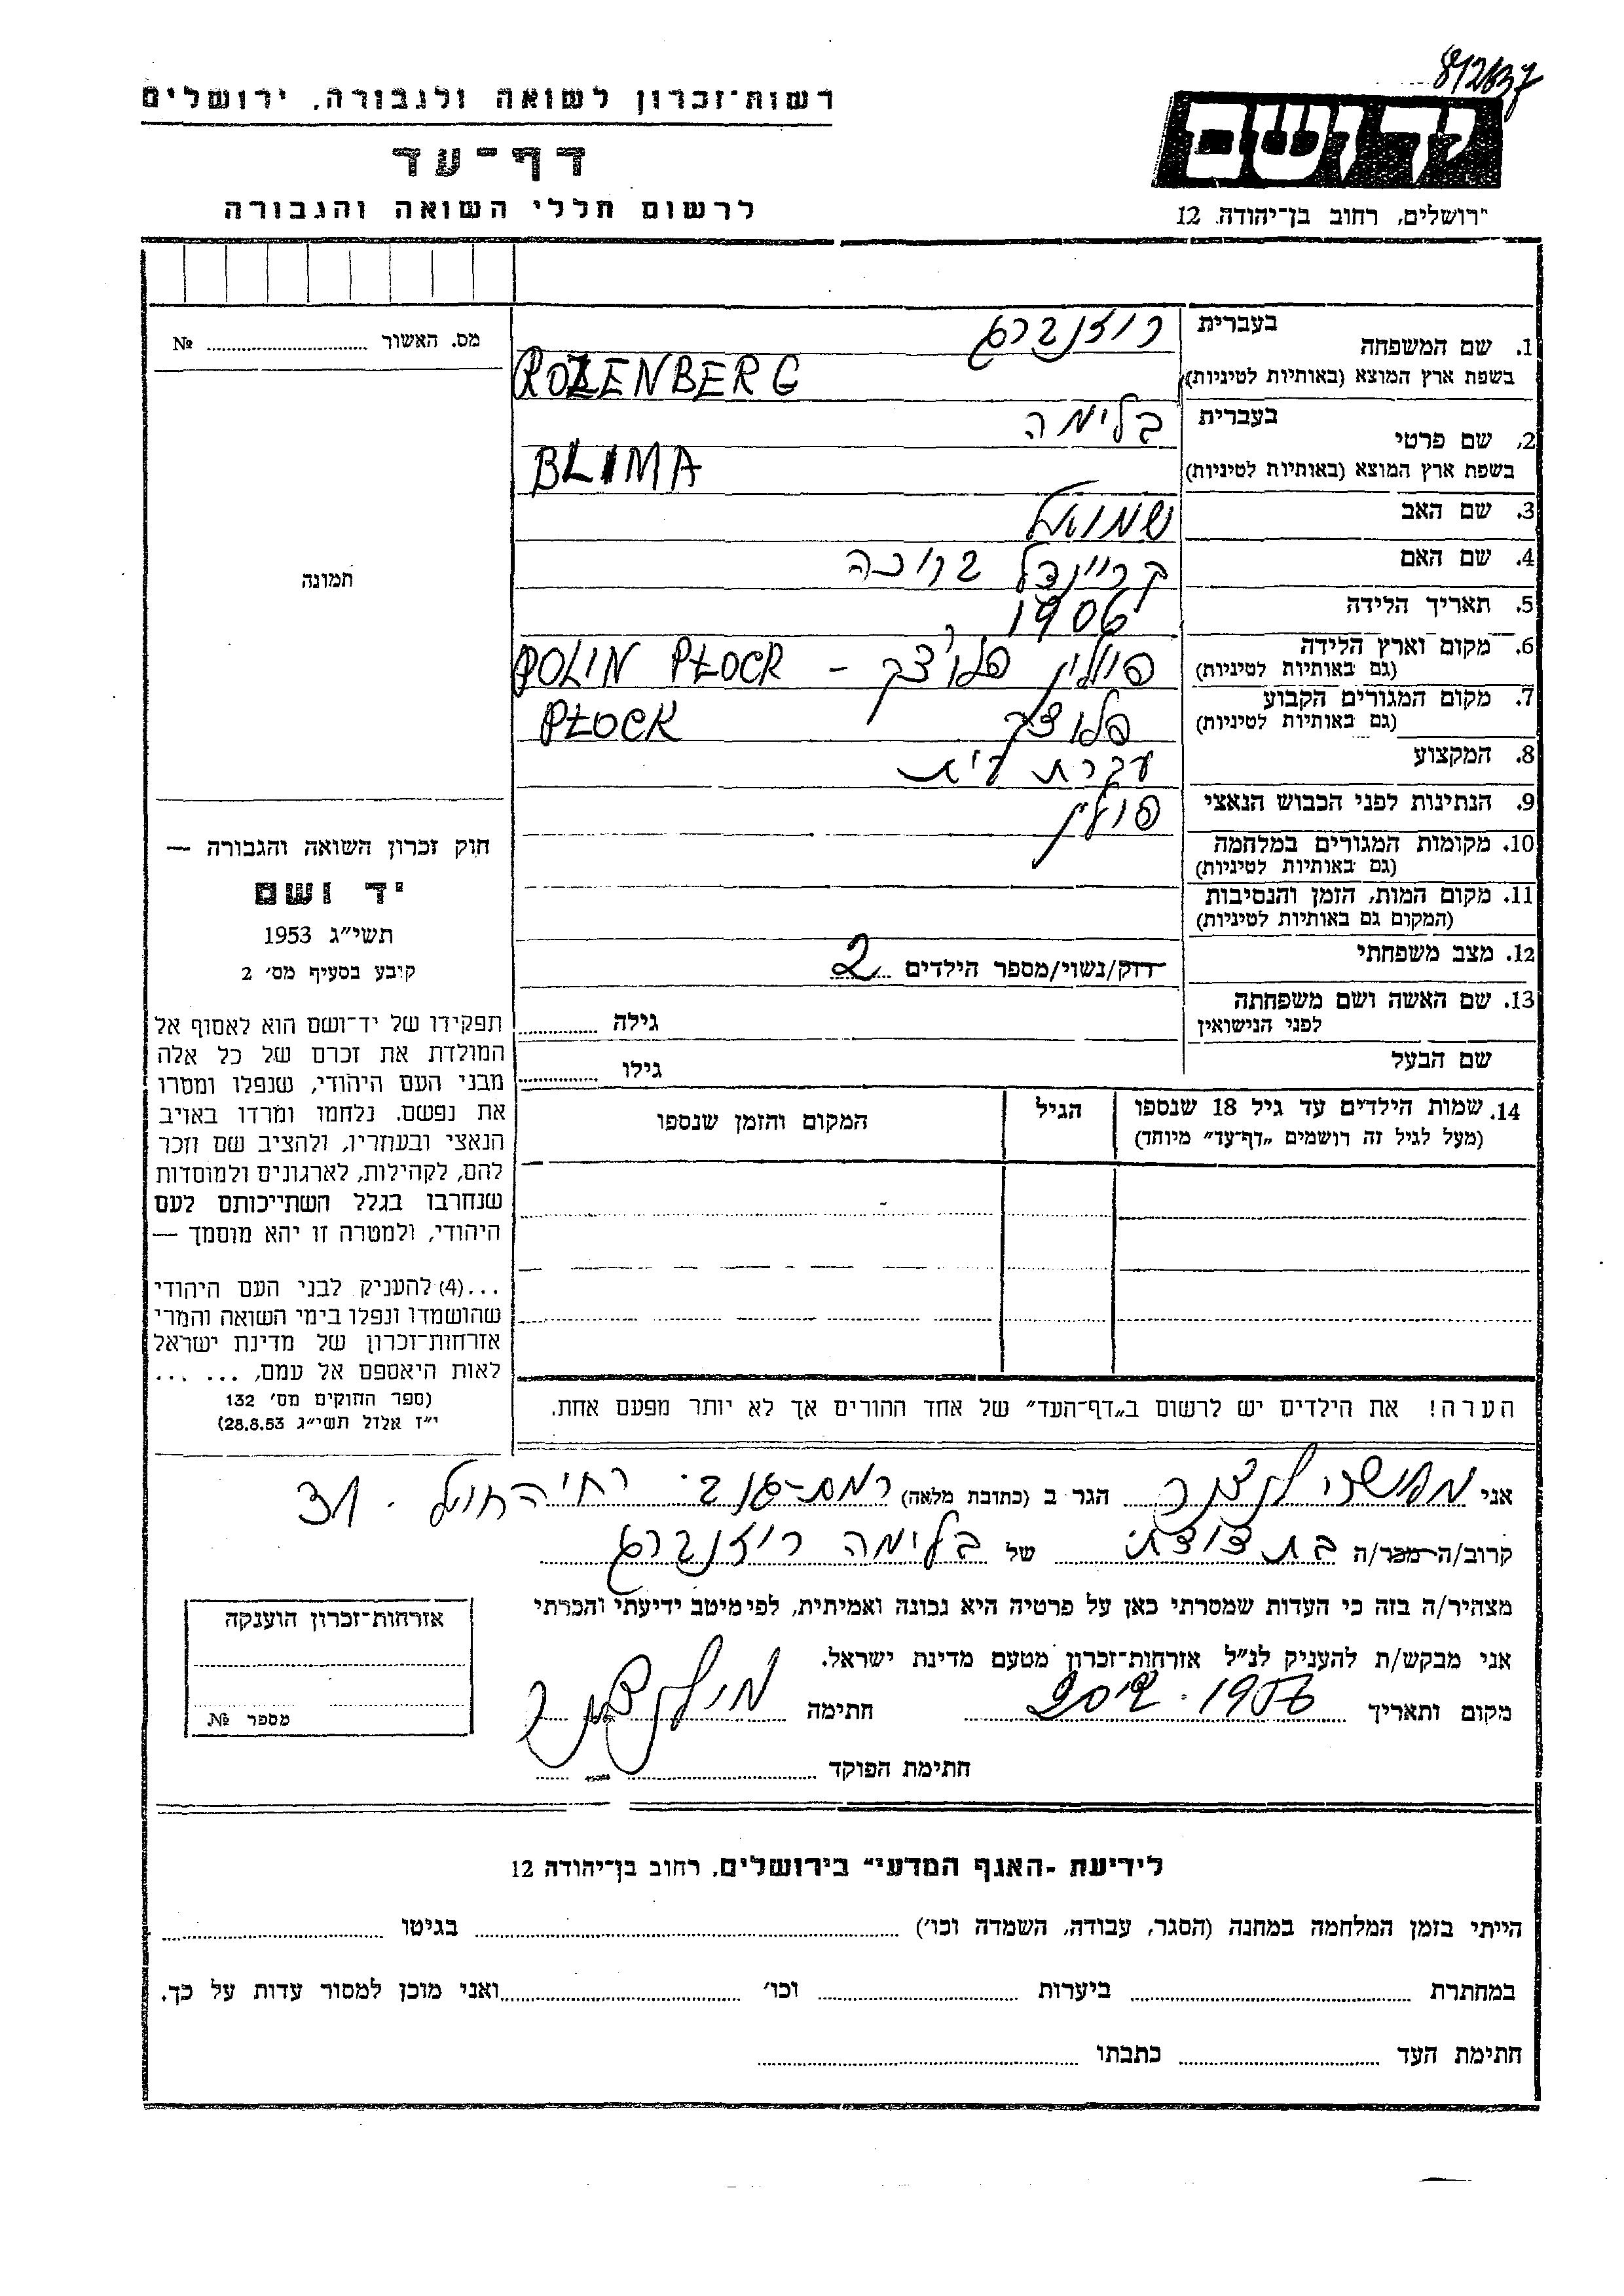 רשות־זכרון לשואה ולגבורה, ירושלים
דף־עד
לרשום חללי השואה והגבורה
יד ושם
ירושלים, רחוב בן־יהודה 12
מס. האשור № 
1. שם המשפחה
בעברית רוזנברג
בשפת ארץ המוצא (באותיות לטיניות) ROZENBERG
2. שם פרטי
בעברית בלימה
בשפת ארץ המוצא (באותיות לטיניות) BLIMA
3. שם האב שמואל
4. שם האם קריינדל ברוכה
5. תאריך הלידה 1906
6. מקום וארץ הלידה (גם באותיות לטיניות) פולין פלוצק - POLIN PŁOCK
7. מקום המגורים הקבוע (גם באותיות לטיניות) פלוצק PŁOCK
8. המקצוע עקרת בית
9. הנתינות לפני הכבוש הנאצי פולין
10. מקומות המגורים במלחמה (גם באותיות לטיניות)
11. מקום המות, הזמן והנסיבות (המקום גם באותיות לטיניות)
12. מצב משפחתי רווק/נשוי/מספר הילדים 2
13. שם האשה ושם משפחתה לפני הנישואין גילה
שם הבעל גילו
14. שמות הילדים עד גיל 18 שנספו (מעל לגיל זה רושמים „דף־עד” מיוחד)
הגיל
המקום והזמן שנספו
הערה! את הילדים יש לרשום ב„דף־העד” של אחד ההורים אך לא יותר מפעם אחת.
תמונה
חוק זכרון השואה והגבורה —
יד ושם
תשי״ג 1953
קובע בסעיף מס׳ 2
תפקידו של יד־ושם הוא לאסוף אל
המולדת את זכרם של כל אלה
מבני העם היהודי, שנפלו ומסרו
את נפשם, נלחמו ומרדו באויב
הנאצי ובעוזריו, ולהציב שם וזכר
להם, לקהילות, לארגונים ולמוסדות
שנחרבו בגלל השתייכותם לעם
היהודי, ולמטרה זו יהא מוסמך —
...(4) להעניק לבני העם היהודי
שהושמדו ונפלו בימי השואה והמרי
אזרחות־זכרון של מדינת ישראל
לאות היאספם אל עמם, ... ...
(ספר החוקים מס׳ 132
י״ז אלול תשי״ג 28.8.53)
אני הגר ב (כתובת מלאה) רמת־גן רח׳ 31
קרוב/ה מכר/ה בת דודתי של בלימה רוזנברג
מצהיר/ה בזה כי העדות שמסרתי כאן על פרטיה היא נכונה ואמיתית, לפי מיטב ידיעתי והכרתי
אני מבקש/ת להעניק לנ״ל אזרחות־זכרון מטעם מדינת ישראל.
מקום ותאריך 1956 חתימה
חתימת הפוקד
אזרחות־זכרון הוענקה
מספר №
לידיעת „האגף המדעי” בירושלים, רחוב בן־יהודה 12
הייתי בזמן המלחמה במחנה (הסגר, עבודה, השמדה וכו׳) בגיטו
במחתרת ביערות וכו׳ ואני מוכן למסור עדות על כך.
חתימת העד כתבתו